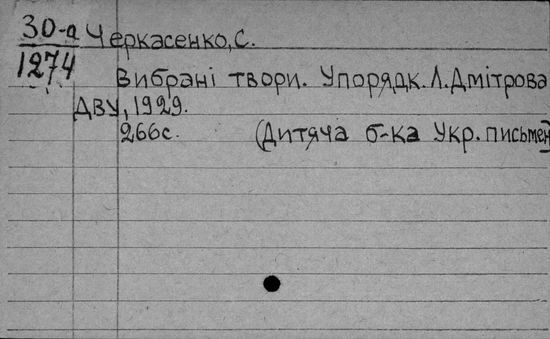 30-а Черкасенко, С.
1274
Вибрані твори. Упорядк. Л. Дмітрова
ДВУ, 1929.
266с. (Дитяча б-ка Укр. письмен